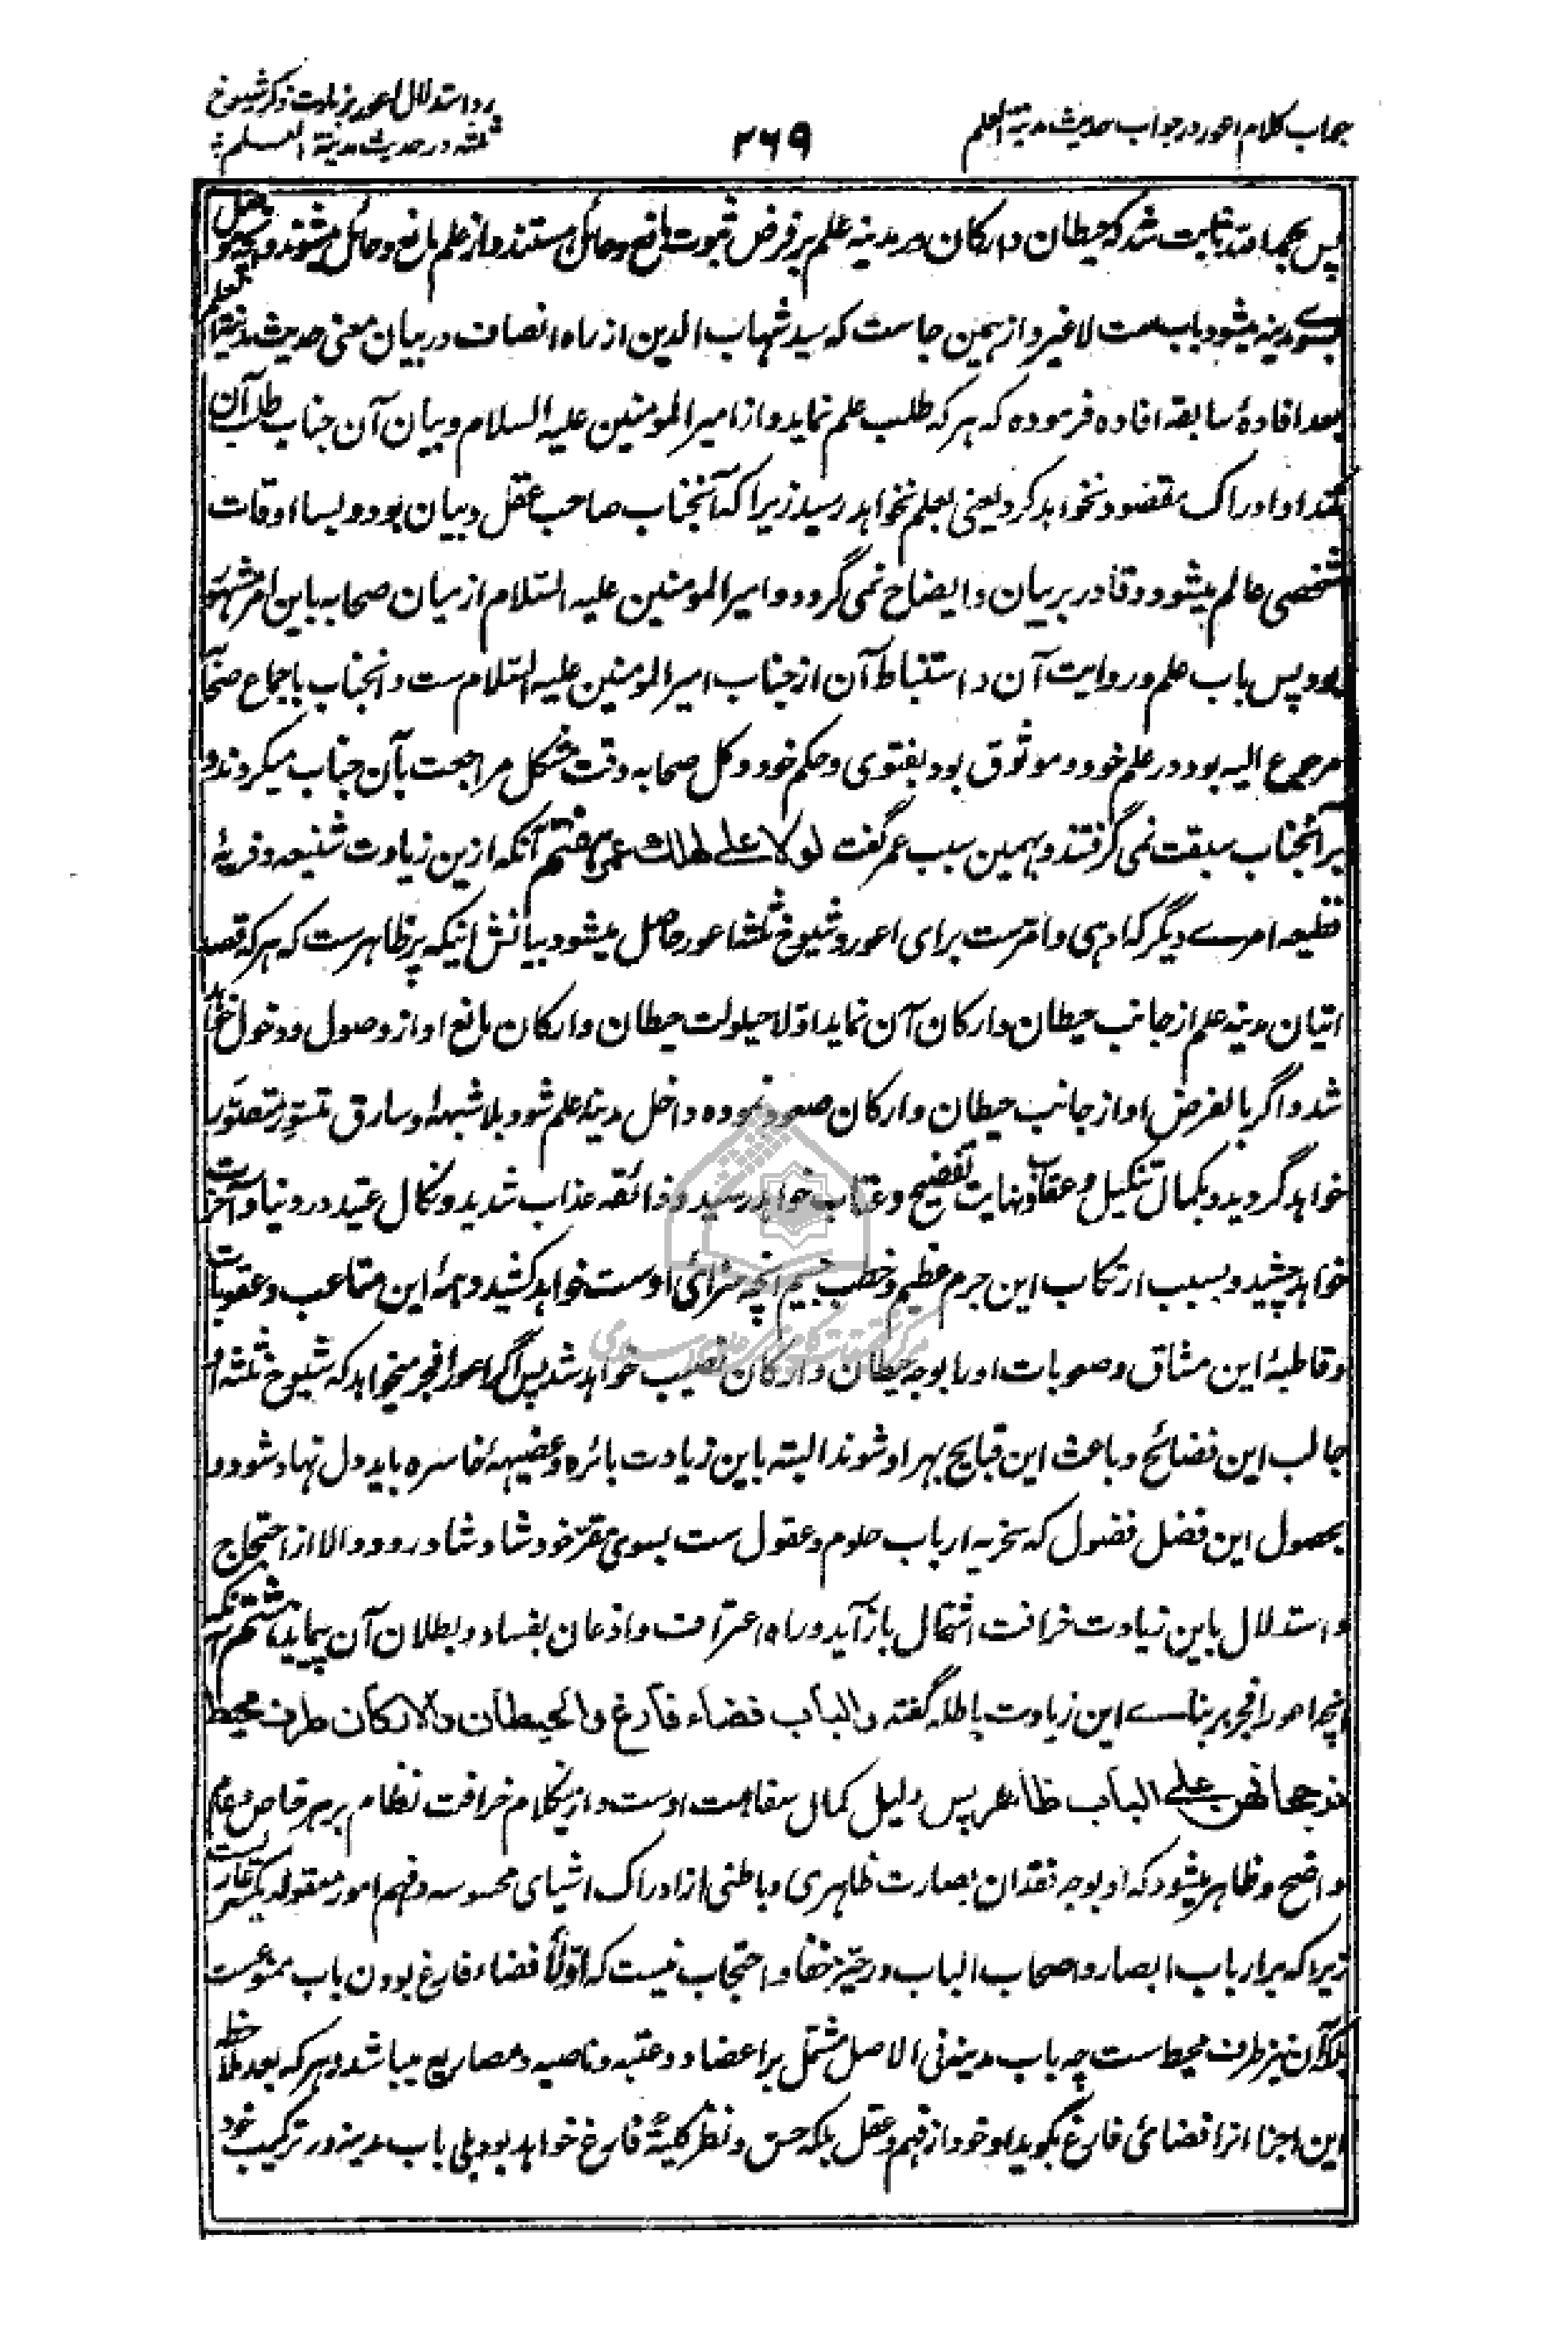 جواب کلام اعور در جواب حدیث مدینة العلم
۲۶۹
رد استدلال اعور بزیادت ذکر شیوخ
ثلثه در حدیث مدینة العلم
پس بحمد الله ثابت شد که حیطان و ارکان در مدینه علم بر فرض ثبوت مانع و حائل هستند و از علم مانع و حائل میشوند و آنچه موصل
بسوی مدینه میشود باب ست لا غیر و از همین جاست که سید شهاب الدین از راه انصاف در بیان معنی حدیث مدینة العلم
بعد افادهٔ سابقه افاده فرموده که هر که طلب علم نماید و از امیر المومنین علیه السلام و بیان آن جناب طلب آن
نکند او ادراک مقصود نخواهد کرد یعنی بعلم نخواهد رسید زیرا که آنجناب صاحب عقل و بیان بود و بسا اوقات
شخصی عالم میشود و قادر بر بیان و ایضاح نمی گردد و امیر المومنین علیه السلام از میان صحابه باین امر مشهور
بود پس باب علم و روایت آن و استنباط آن از جناب امیر المومنین علیه السلام ست و انجناب باجماع صحابه
مرجوع الیه بود در علم خود و موثوق بود بفتوی و حکم خود و کل صحابه وقت مشکل مراجعت بآن جناب میکردند و
بر آنجناب سبقت نمی گرفتند و بهمین سبب عمر گفت لولا علی لهلک عمر هفتم آنکه ازین زیادت شنیعه و فریهٔ
فظیعه امرے دیگر که ادهی و امرست برای اعور و شیوخ ثلثه اعور حاصل میشود بیانش اینکه پر ظاهرست که هر که قصد
اتیان مدینه علم از جانب حیطان و ارکان آن نماید اولا حیلولت حیطان و ارکان مانع او از وصول و دخول خواهد
شد و اگر بالفرض او از جانب حیطان و ارکان صعود نموده داخل مدینه علم شود بلا شبهه او سارق متسور متصور
خواهد گردید و بکمال تنکیل و عقاب و نهایت تفضیح و عتاب خواهد رسید و ذائقه عذاب شدید و نکال عتید در دنیا و آخرت
خواهد چشید و بسبب ارتکاب این جرم عظیم و خطب جسیم آنچه سزائی اوست خواهد کشید و همهٔ این متاعب و عقوبات
و قاطبهٔ این مشاق و صعوبات او را بوجه حیطان و ارکان نصیب خواهد شد پس اگر اعور افجر میخواهد که شیوخ ثلثه او
جالب این فضائح و باعث این قبایح بهر او شوند البته باین زیادت بائره و عضیههٔ خاسره باید دل نهاد شود و
بحصول این فضل فضول که سخریه ارباب حلوم و عقول ست بسوی مقر خود شاد شاد رود و الا از احتجاج
و استدلال باین زیادت خرافت اشتمال باز آید و راه اعتراف و اذعان بفساد و بطلان آن پیماید هشتم آنکه
آنچه اعور افجر بر بنای این زیادت باطله گفته والباب فضاء فارغ والحیطان والارکان طرف محیط
فرجحانهن علی الباب ظاهر پس دلیل کمال سفاهت اوست و ازین کلام خرافت نظام بر هر خاص و عام
واضح و ظاهر میشود که او بوجه فقدان بصارت ظاهری و باطنی از ادراک اشیای محسوسه و فهم امور معقوله یکسر عاریست
زیرا که بر ارباب ابصار و اصحاب الباب در حیز خفا و احتجاب نیست که اولا فضاء فارغ بودن باب ممنوعست
بلکه آن نیز طرف محیط ست چه باب مدینه فی الاصل مشتمل بر اعضاد و عتبه و ناصیه و مصاریع میباشد و هر که بعد ملاحظه
این اجزا انرا فضائی فارغ بگوید او خود از فهم و عقل بلکه حس و نظر کلیةً فارغ خواهد بود بلی باب مدینه در ترکیب خود